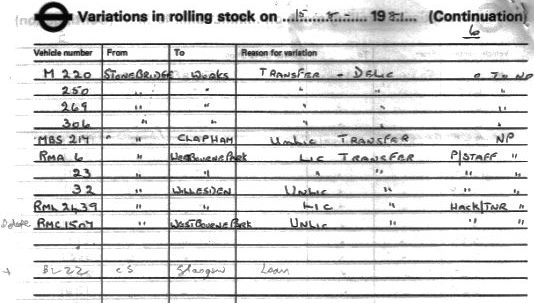 Variations in rolling stock on 15 19 81 (Continuation)
6
Vehicle number From To Reason for variation
M 220 STONEBRIDGE WORKS TRANSFER - DELIC O TO NP
250 " " " " "
269 " " " " "
306 " " " " "
MBS 217 " " CLAPHAM UNLIC TRANSFER NP
RMA 6 " WESTBOURNE PARK LIC TRANSFER P/STAFF "
23 " " " " " "
32 " WILLESDEN UNLIC " " "
RML 2439 " " LIC " HACK/TNR "
Delete RMC 1507 " WESTBOURNE PARK UNLIC " " "
+ BL 22 CS Glasgow Loan